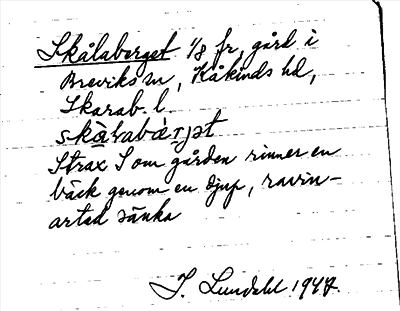 Skålaberget 1/8 fr, gård i
Breviks sn, Kåkinds hd,
Skarab. l.
skålabærjət
Strax S om gården rinner en
bäck genom en djup, ravin-
artad sänka
J. Lundahl 1947.